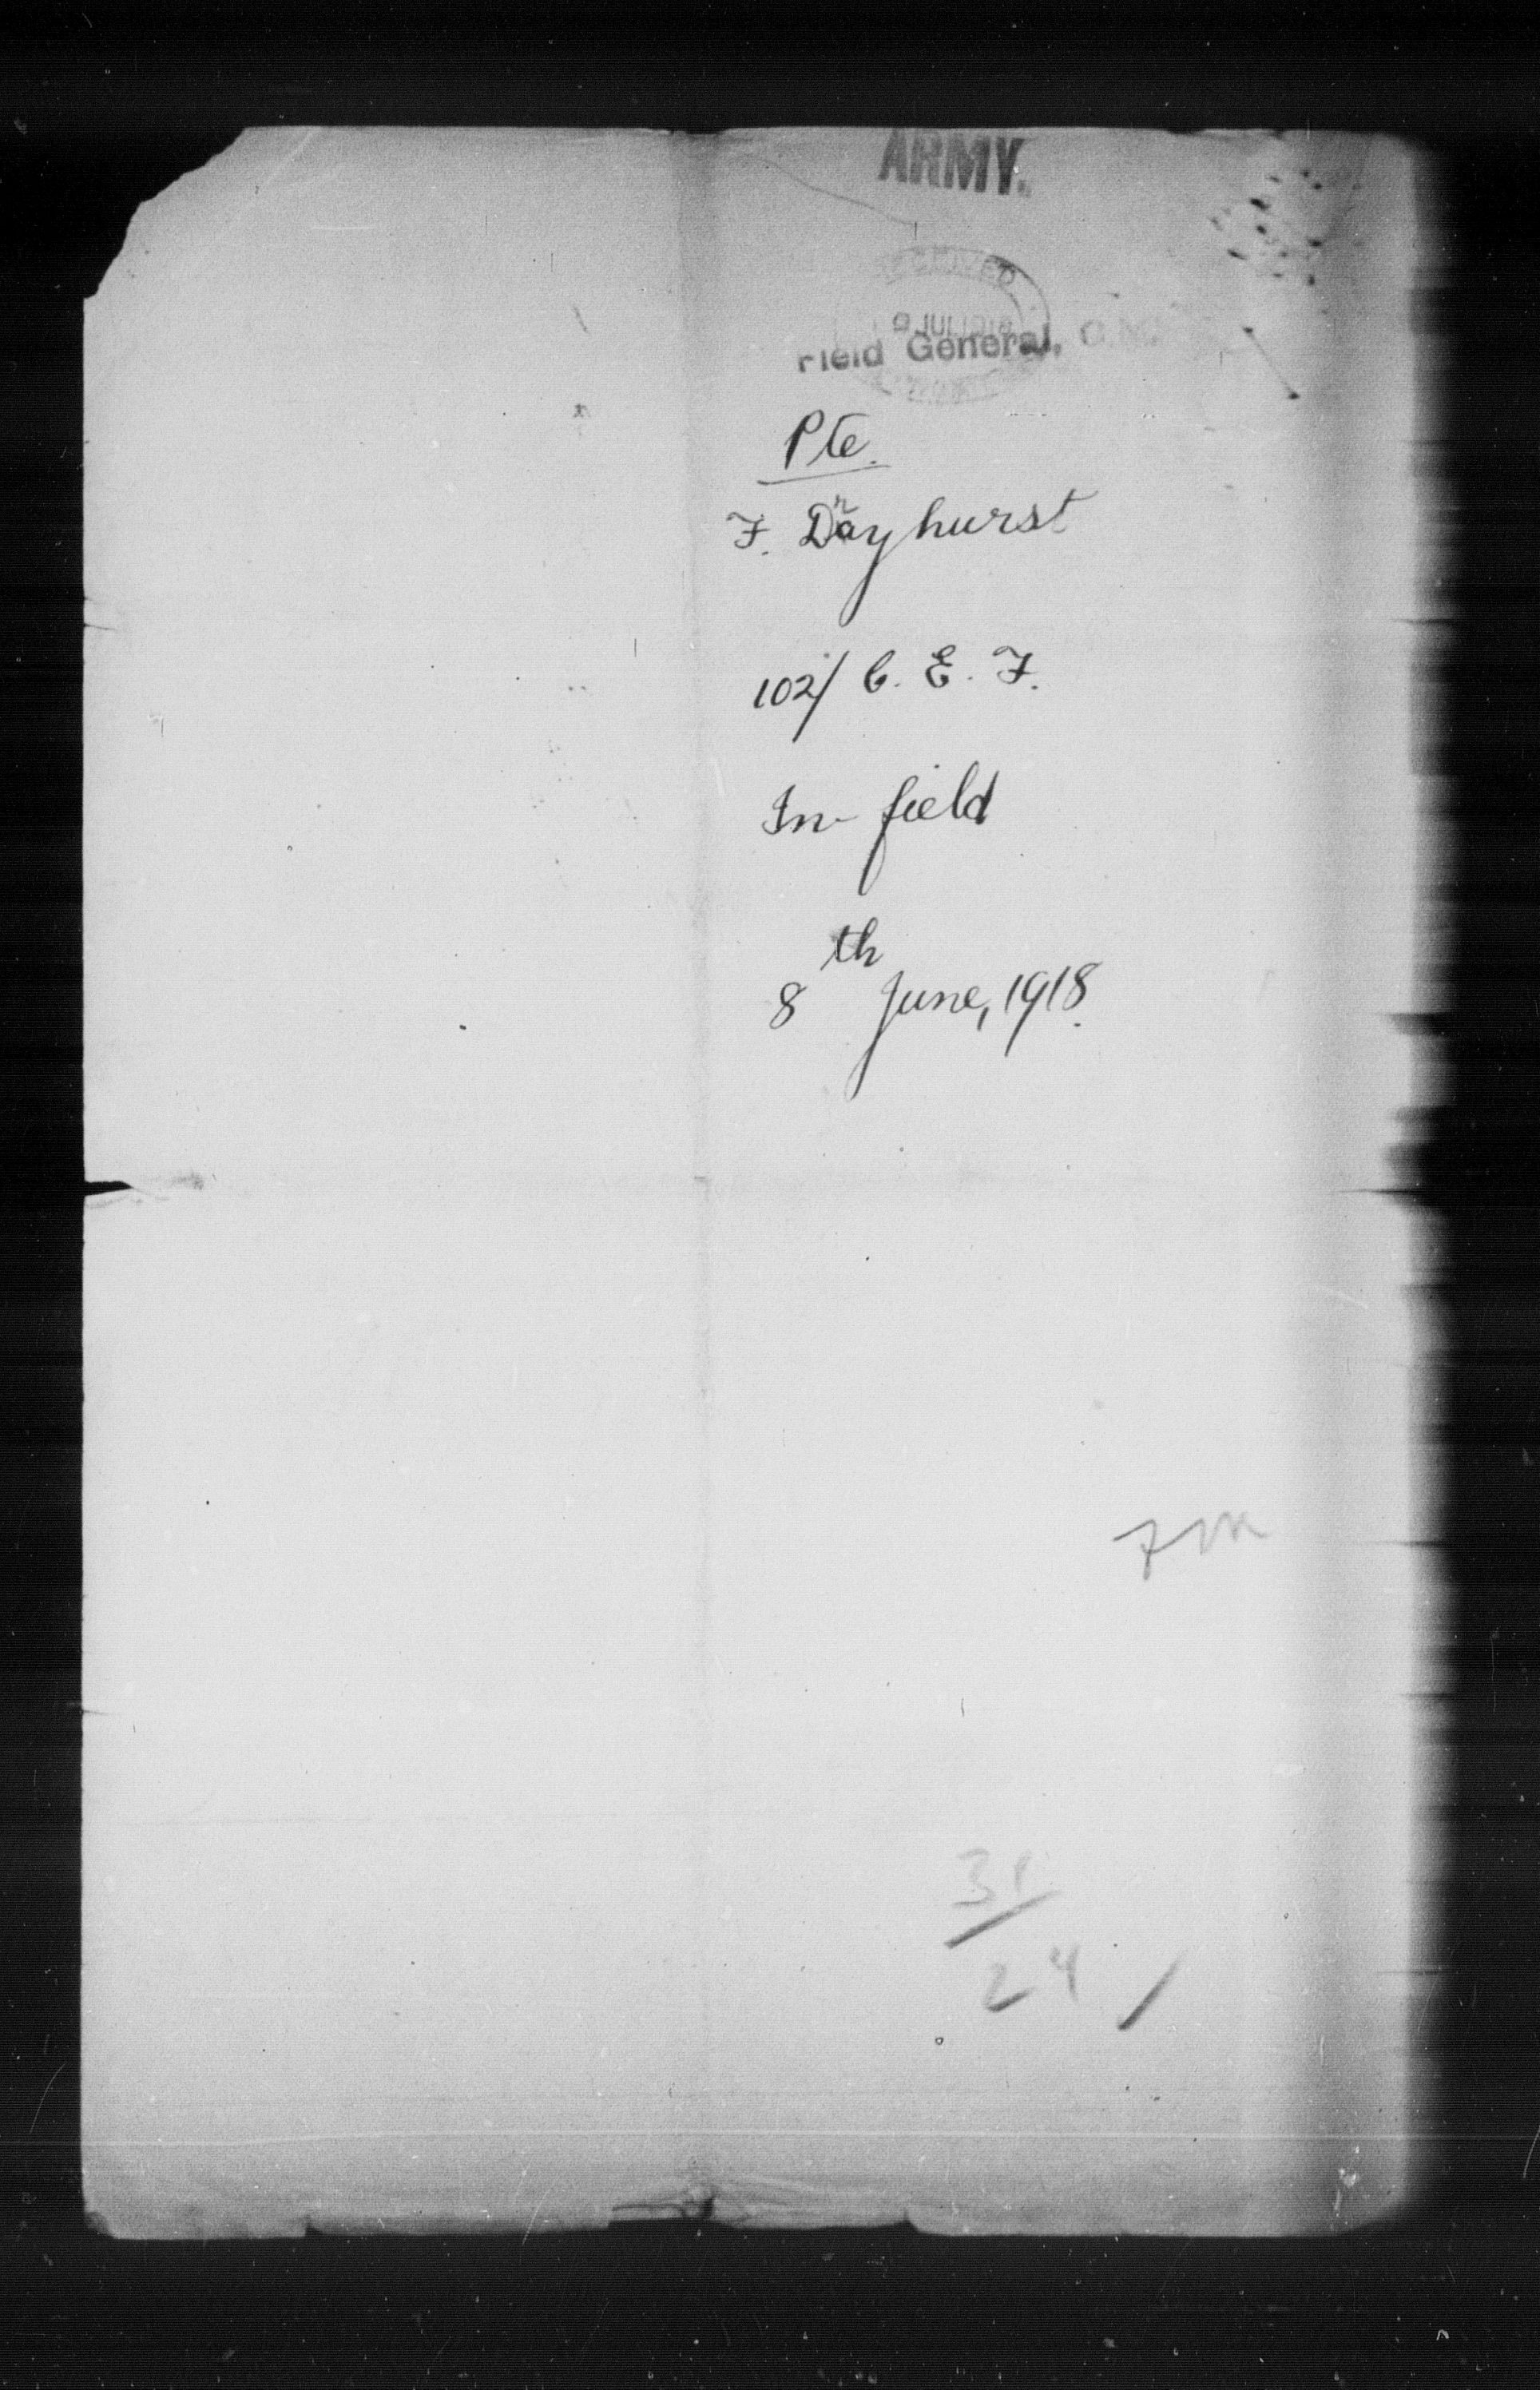 ARMY.
RECEIVED
9 JUL 1918
Field General, C.M.
Pte.
F. Drayhurst
102/ C. E. F.
In field
8th June, 1918.
31
24 /